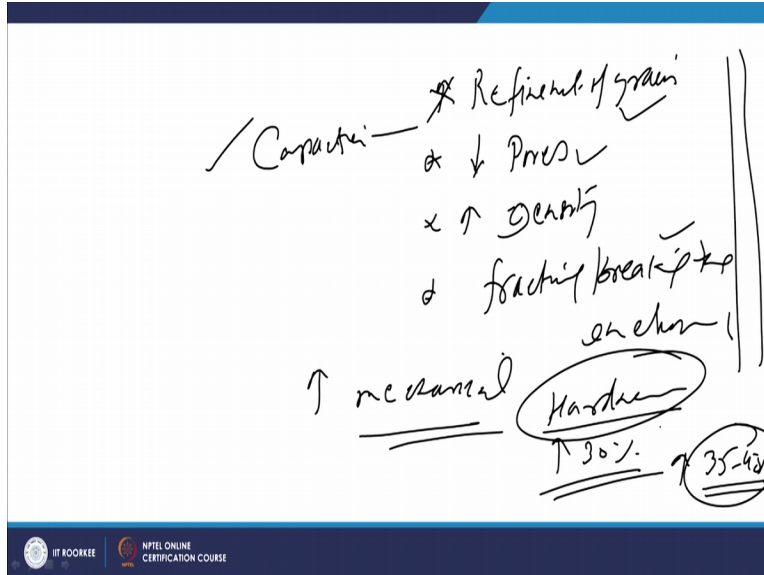 Compaction — * Refinement of grain
* ↓ Pores
* ↑ Density
* fracturing/breaking
↑ mechanical Hardness
↑ 30% ↑ 35-40
IIT ROORKEE
NPTEL ONLINE
CERTIFICATION COURSE